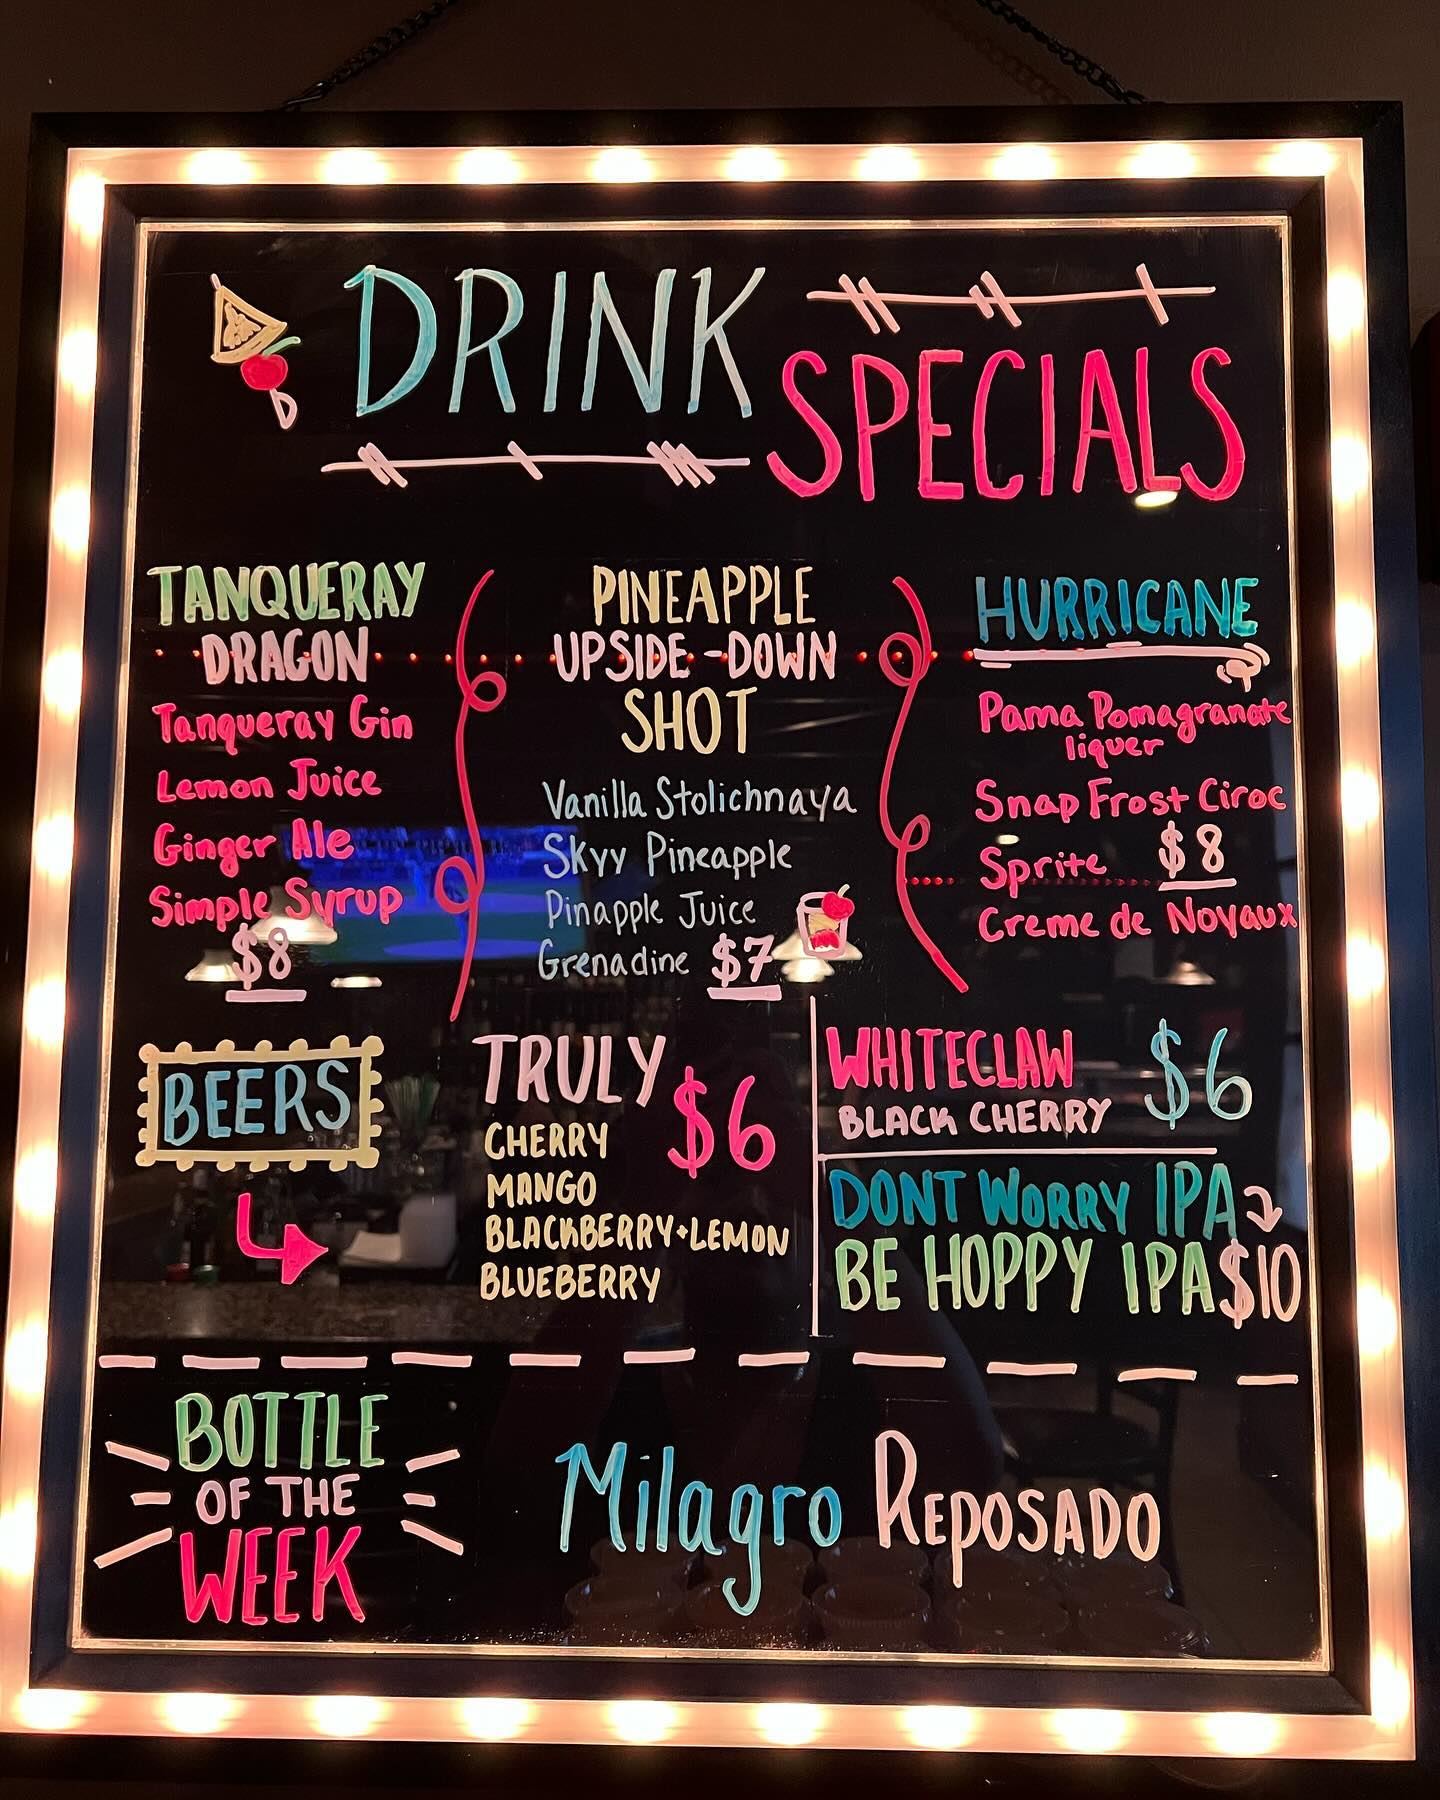 DRINK
SPECIALS
TANQUERAY
DRAGON
Tanqueray Gin
Lemon Juice
Ginger Ale
Simple Syrup
$8
PINEAPPLE
UPSIDE-DOWN
SHOT
Vanilla Stolichnaya
Skyy Pineapple
Pinapple Juice
Grenadine $7
HURRICANE
Pama Pomagranate
liquer
Snap Frost Ciroc
Sprite $8
Creme de Noyaux
BEERS
TRULY $6
CHERRY
MANGO
BLACKBERRY+LEMON
BLUEBERRY
WHITECLAW $6
BLACK CHERRY
DONT WORRY IPA
BE HOPPY IPA $10
BOTTLE
OF THE
WEEK
Milagro REPOSADO